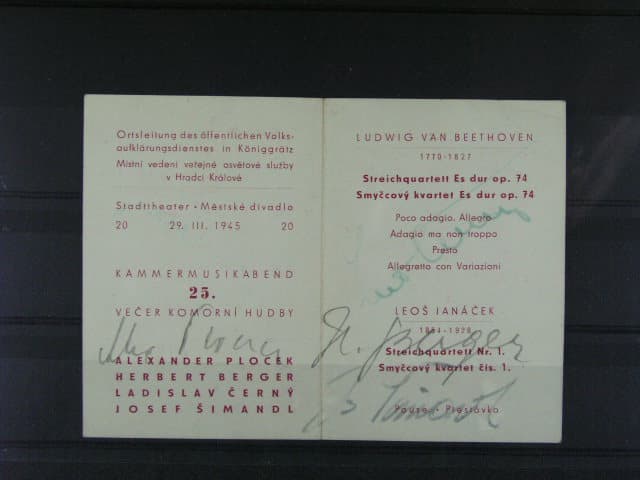 Ortsleitung des öffentlichen Volks-
aufklärungsdienstes in Königgrätz
Místní vedení veřejné osvětové služby
v Hradci Králové
Stadttheater • Městské divadlo
20 29. III. 1945 20
KAMMERMUSIKABEND
25.
VEČER KOMORNÍ HUDBY
ALEXANDER PLOCEK
HERBERT BERGER
LADISLAV ČERNÝ
JOSEF ŠIMANDL
LUDWIG VAN BEETHOVEN
1770-1827
Streichquartett Es dur op. 74
Smyčcový kvartet Es dur op. 74
Poco adagio. Allegro
Adagio ma non troppo
Presto
Allegretto con Variazioni
LEOŠ JANÁČEK
1854-1928
Streichquartett Nr. 1.
Smyčcový kvartet čís. 1.
Pauze • Přestávka
H. Berger